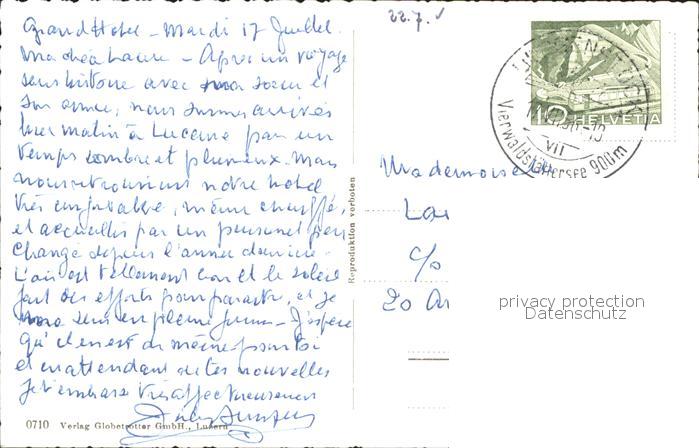 22.7.
Grand Hotel - Mardi 17 Juillet.
Ma chère Laure - Après un voyage
sans histoire avec ma soeur et
son amie, nous sommes arrivés
hier matin à Lucerne par un
temps sombre et pluvieux. Mais
nous retrouvions notre hotel
très confortable, même chauffé,
et accueillis par un personnel peu
changé depuis l'année dernière.
L'air est tellement bon et le soleil
fait des efforts pour paraître, et je
me sens en pleine forme - J'espère
qu'il en est de même pour toi
et en attendant de tes nouvelles
je t'embrasse très affectueusement
0710 Verlag Globetrotter GmbH., Luzern
Reproduktion verboten
HELVETIA
10
VII
Vierwaldstättersee 900m
Mademoise
c/o
20
privacy protection
Datenschutz